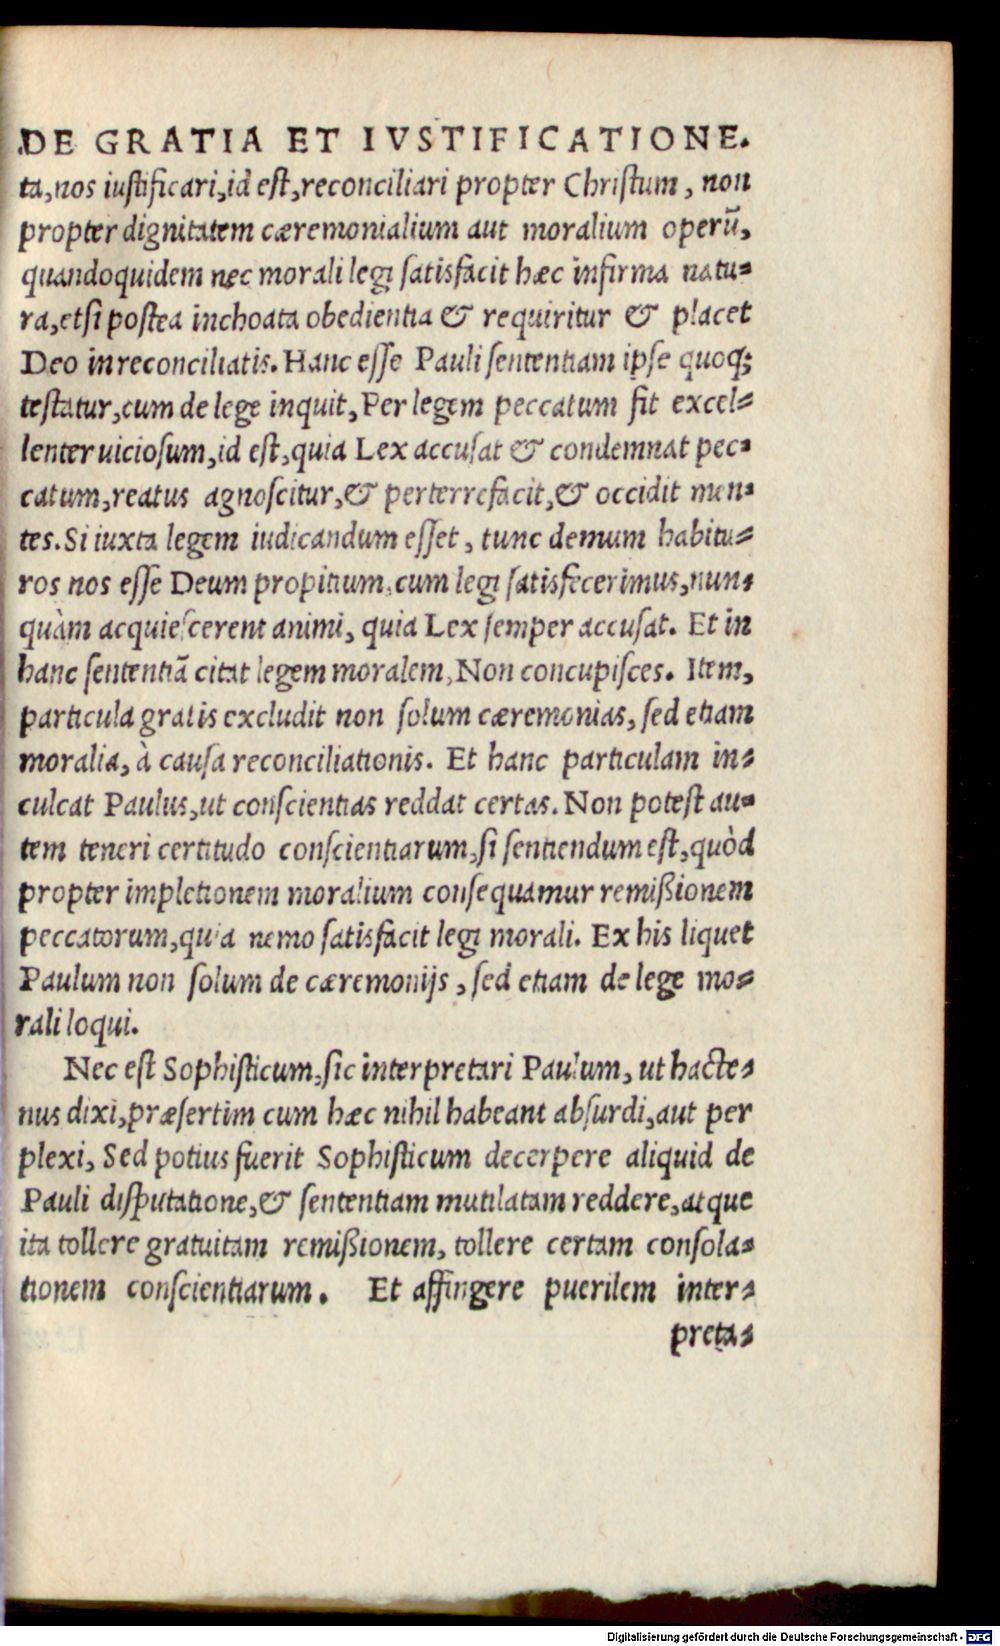 DE GRATIA ET IVSTIFICATIONE.
ta, nos iustificari, id est, reconciliari propter Christum, non
propter dignitatem cæremonialium aut moralium operũ,
quandoquidem nec morali legi satisfacit hæc infirma natu-
ra, etsi postea inchoata obedientia & requiritur & placet
Deo in reconciliatis. Hanc esse Pauli sententiam ipse quoq;
testatur, cum de lege inquit, Per legem peccatum fit excel-
lenter uiciosum, id est, quia Lex accusat & condemnat pec-
catum, reatus agnoscitur, & perterrefacit, & occidit men-
tes. Si iuxta legem iudicandum esset, tunc demum habitu-
ros nos esse Deum propitium, cum legi satisfecerimus, nun-
quàm acquiescerent animi, quia Lex semper accusat. Et in
hanc sententiã citat legem moralem, Non concupisces. Item,
particula gratis excludit non solum cæremonias, sed etiam
moralia, à causa reconciliationis. Et hanc particulam in-
culcat Paulus, ut conscientias reddat certas. Non potest au-
tem teneri certitudo conscientiarum, si sentiendum est, quòd
propter impletionem moralium consequamur remißionem
peccatorum, quia nemo satisfacit legi morali. Ex his liquet
Paulum non solum de cæremonijs, sed etiam de lege mo-
rali loqui.
Nec est Sophisticum, sic interpretari Paulum, ut hacte-
nus dixi, præsertim cum hæc nihil habeant absurdi, aut per
plexi, Sed potius fuerit Sophisticum decerpere aliquid de
Pauli disputatione, & sententiam mutilatam reddere, atque
ita tollere gratuitam remißionem, tollere certam consola-
tionem conscientiarum. Et affingere puerilem inter-
preta-
Digitalisierung gefördert durch die Deutsche Forschungsgemeinschaft - DFG